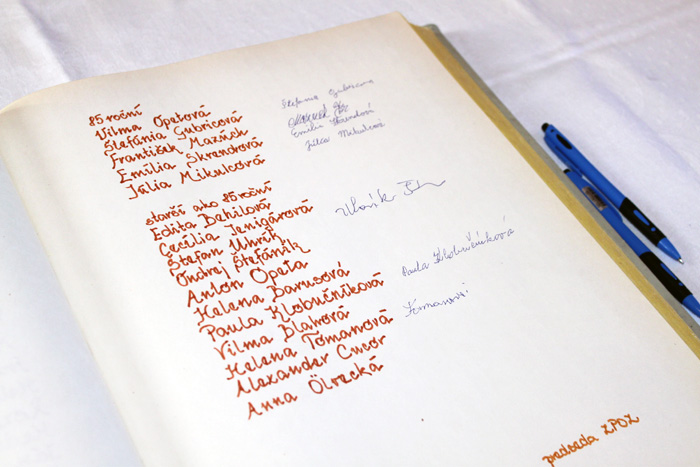 85 roční
Vilma Opetová
Štefánia Gubricová
František Mazúch
Emília Skrendrová
Júlia Mikulcová
Stefania
Emília
Júlia Mikulcová
starší ako 85 roční
Edita Behilová
Cecília Jenigárová
Štefan Uhrík
Ondrej Štefánik
Anton Opeta
Helena Barusová
Paula Klobučníková
Vilma Blahová
Helena Tomanová
Alexander Cucor
Anna Ölvecká
Uhrík Št
Paula Klobučníková
Tomanová
predseda ZPOZ